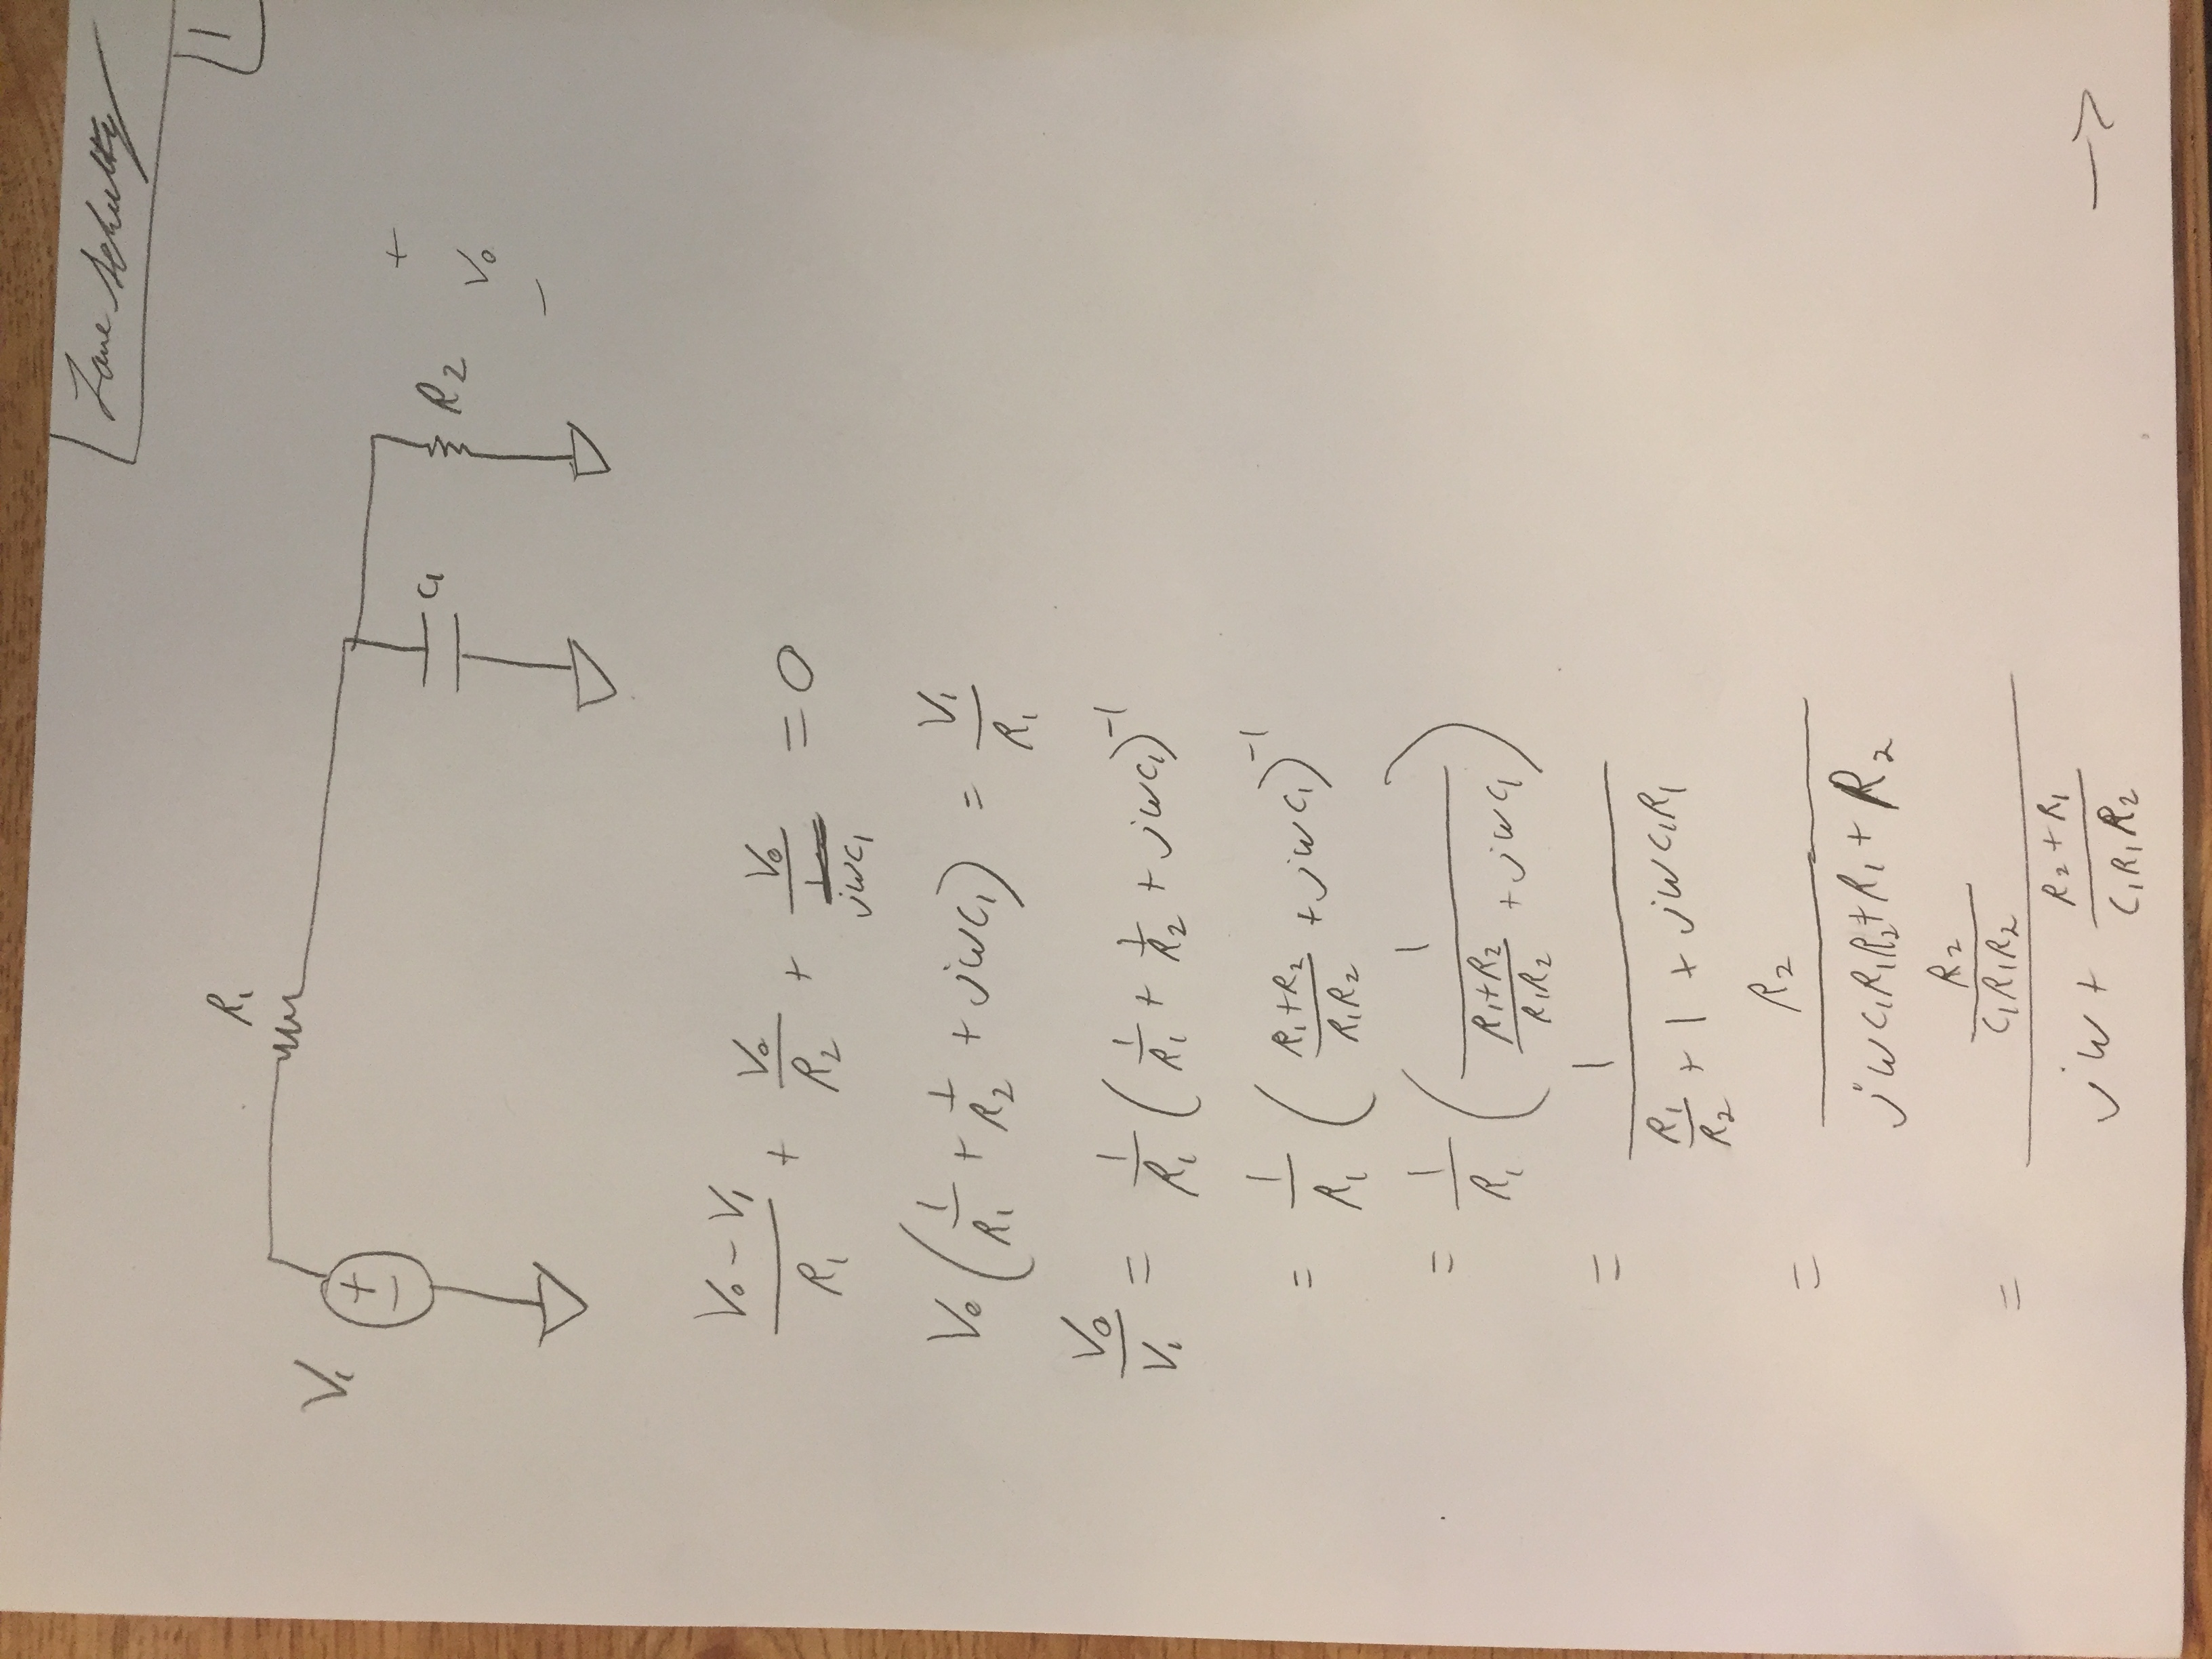 Lane Schultz
1
R₁
V₁
+
−
C₁
R₂
+
V₀
−
(V₀ − V₁)/R₁ + V₀/R₂ + V₀/(1/(jωC₁)) = 0
V₀ (1/R₁ + 1/R₂ + jωC₁) = V₁/R₁
V₀/V₁ = 1/R₁ (1/R₁ + 1/R₂ + jωC₁)⁻¹
= 1/R₁ ((R₁+R₂)/(R₁R₂) + jωC₁)⁻¹
= 1/R₁ (1/((R₁+R₂)/(R₁R₂) + jωC₁))
= 1/(R₁/R₂ + 1 + jωC₁R₁)
= R₂/(jωC₁R₁R₂ + R₁ + R₂)
= (R₂/(C₁R₁R₂))/(jω + (R₂+R₁)/(C₁R₁R₂))
→